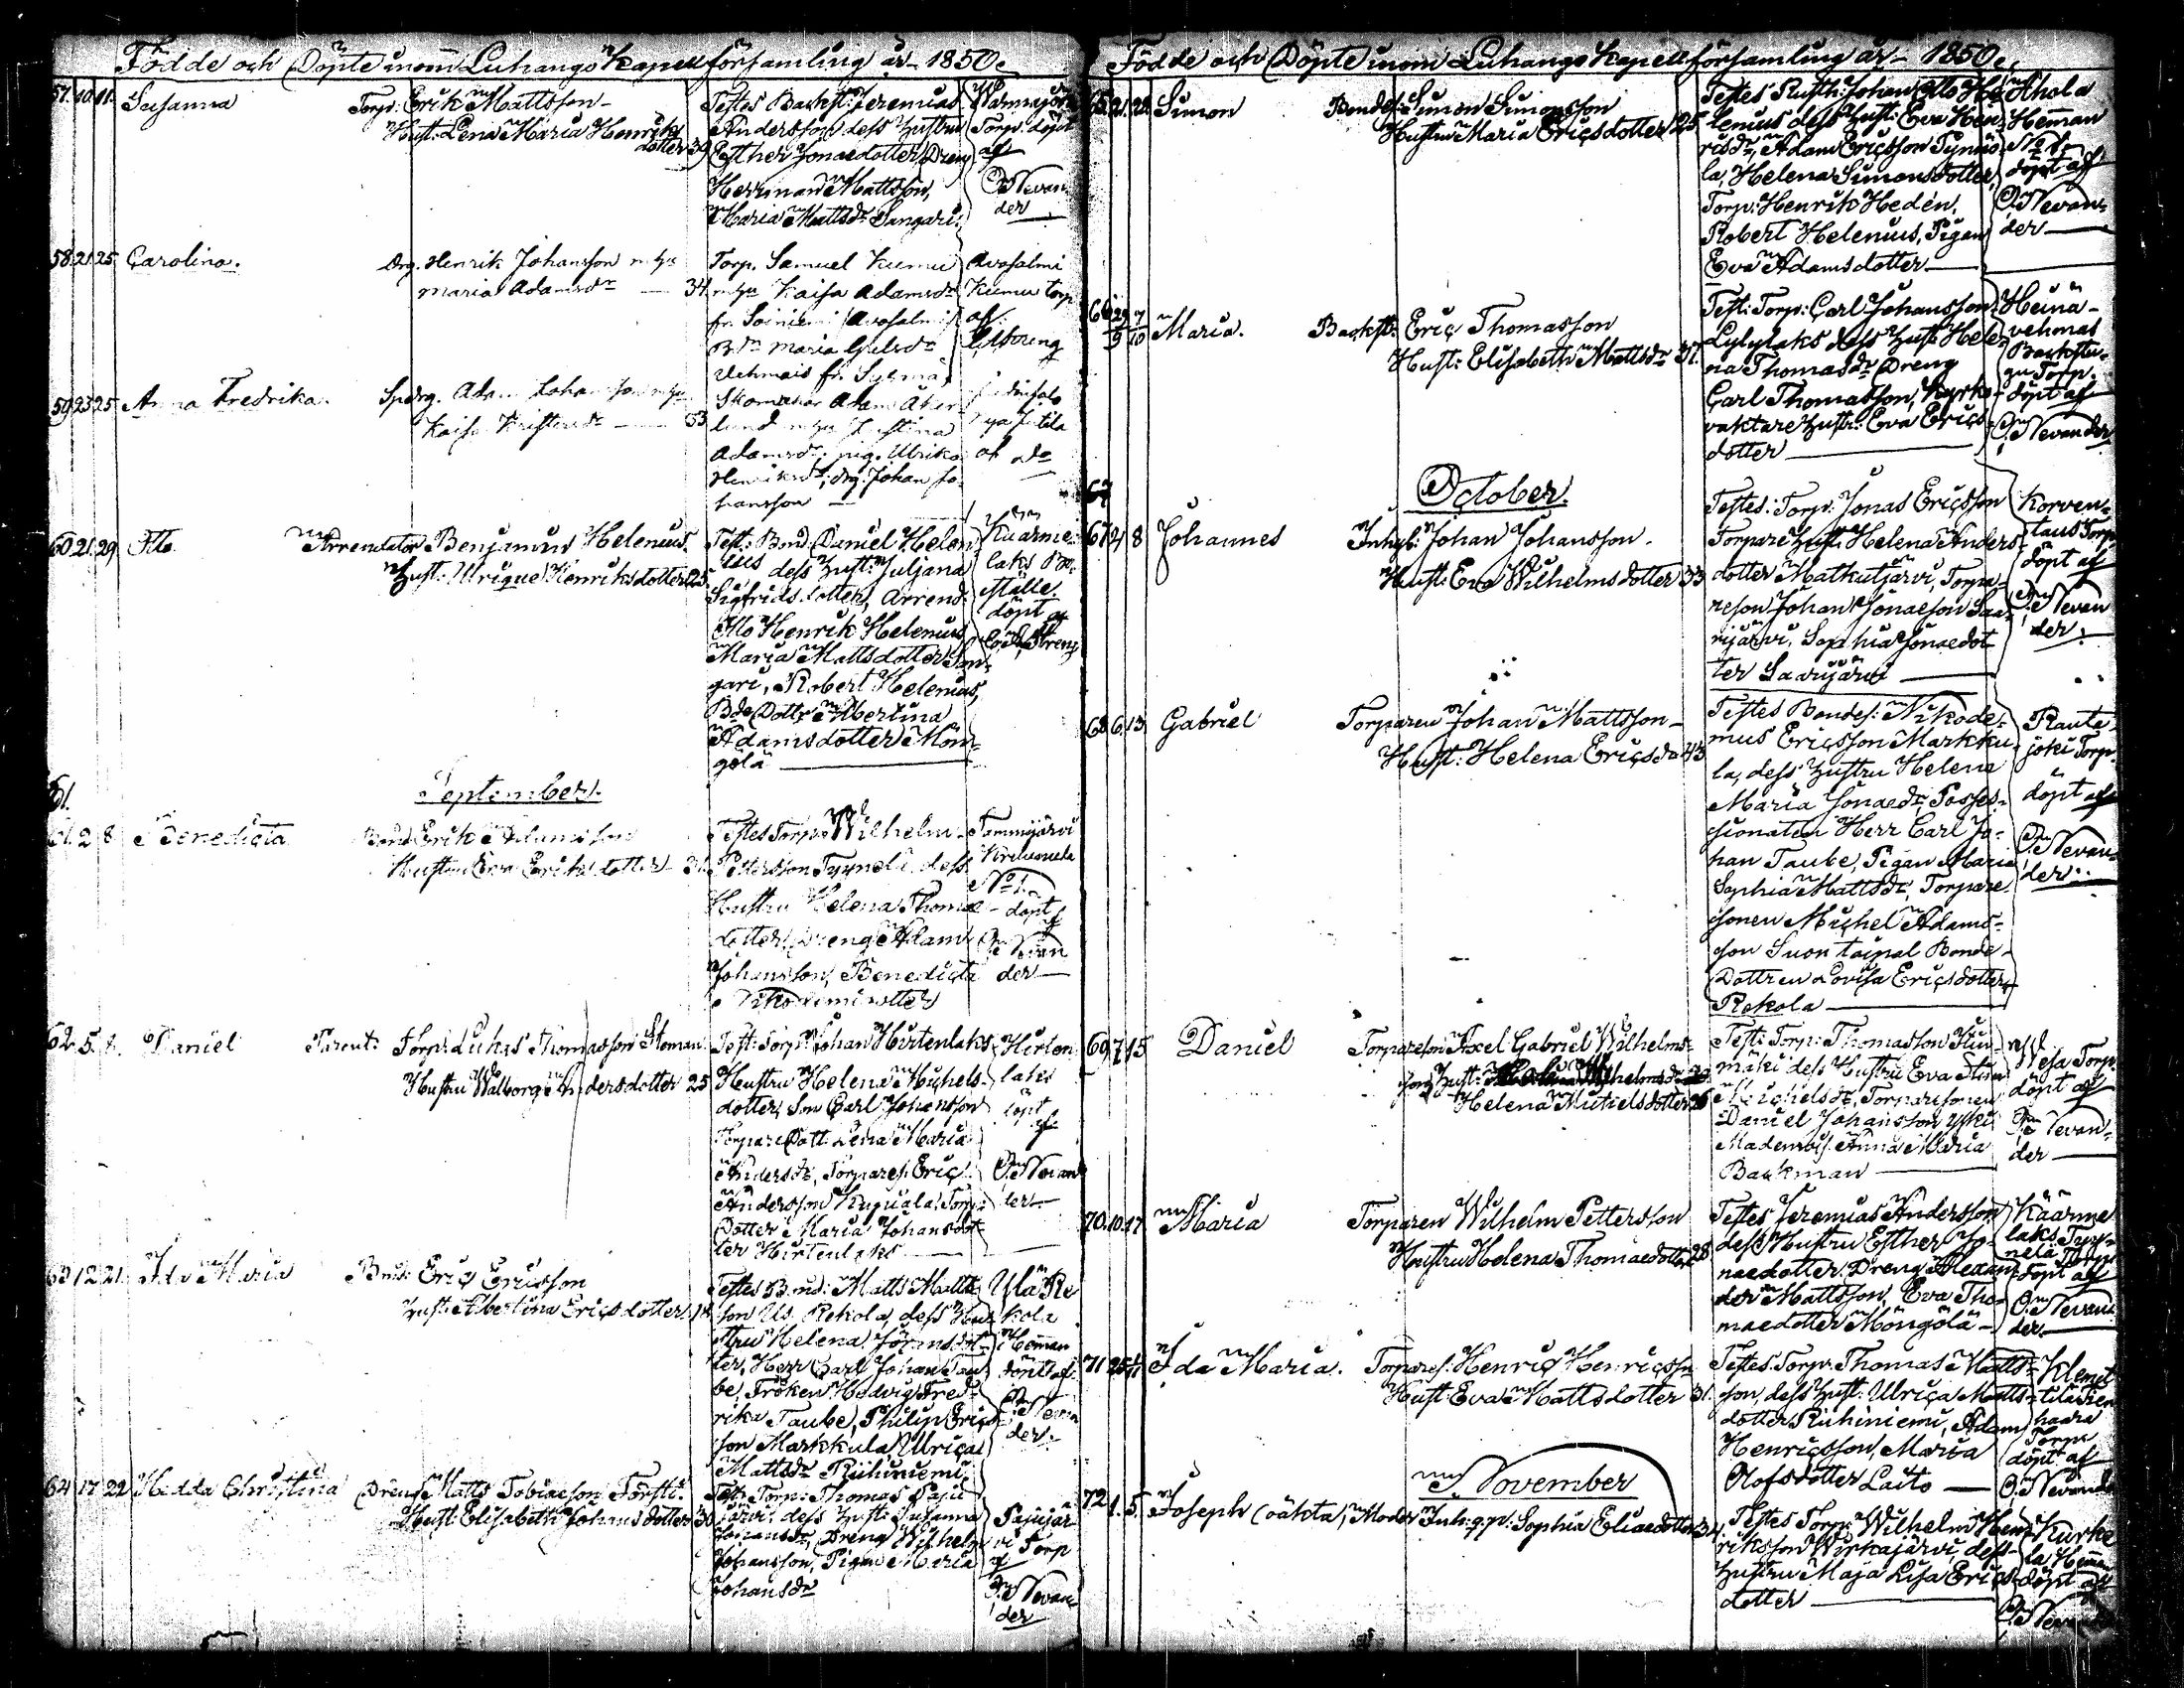 Födde och Döpte inom Luhango Kapellförsamling år 1850.
57. 10. 11. Susanna
Torp: Erik Mattsson
Hust: Lena Maria Henriks
dotter 39
Testes Backst: Jeremias
Andersson dess Hustru
Esther Jonaedotter, Dreng
Herrman Mattsson,
Maria Mattsdr Sangari.
Torp. döpt
af
O. Nevan
der
58 21 25 Carolina.
Drg. Henrik Johansson m hu
Maria Adamsdr 34
Torp. Samuel Kumu
m hu Kaisa Adamsdr
fr. Soiniemi Avosalmi
Bdr Maria
Vehmais fr. Sysmä
Avosalmi
Kumu torp
af
59 23 25 Anna Fredrika.
Spdrg. Adam Johansson m hu
Kaisa Kristersdr 33
Skomakar Adam Åker
lund m hu Justina
Adamsdr; pig. Ulrika
Henriksdr; drg. Johan Jo
hansson
af do
60 21 29 Otto
Arrendator Benjamin Helenius.
Hust: Ulrique Henriksdotter 25.
Test: Bond. Daniel Helen
ius dess Hust: Juljana
Sigfridsdotter, Arrend:
Otto Henrik Helenius
Maria Mattsdotter San
gari, Robert Helenius,
Bde Dottr Albertina
Adamsdotter Mön
gölä
laks Bo
ställe.
döpt af
September.
61.
61. 2 8 Benedicta
Bond Erik Adamsson
Hustru Eva Eriksdotter 31
Testes Torp: Wilhelm
Pettersson Tyynelä dess
Hustru Helena Thomae
dotter, Dreng Adam
Johansson, Benedicta
Nikodemidotter
Tammijärvi
No 1.
döpt
af
O. Nevan
der
62. 5. 8. Daniel
Parent: Torp: Lukas Thomasson Stoman
Hustru Walborg Andersdotter 25
Test: Torp: Johan Hirtenlaks
Hustru Helena Michels
dotter, Son Carl Johansson
Torpare Dott: Lena Maria
Andersdr, Torpares: Eric
Andersson Torp:
Dotter Maria Johansdot
ter Hirtenlaks
Hirten
laks
döpt
af
O. Nevan
der
63 12 21 Ida Maria
Bond: Eric Ericsson
Hust: Albertina Ericsdotter
Testes Bond: Matts Matts
son Us. Rekola, dess Hu
stru Helena Göransdot
ter, Herr Carl Johan Tau
be, Fröken Hedvig Fred
rika Taube, Philip Erics
son Markkula Ulrica
Mattsdr Riihiniemi
Ylä Re
kola
Heman
döpt af
O. Nevan
der.
64 17 22 Hedda Christina
Dreng Matts Tobiaeson Forstti
Hust: Elisabeth Johansdotter 30
Test: Torp: Thomas Paju
järvi dess Hust: Susanna
Johansdr, Dreng Wilhelm
Johansson, Pigan Maria
Johansdr
Pajujär
vi Torp
af
O. Nevan
der
Födde och Döpte inom Luhango Kapellförsamling år 1850.
65 21. 22. Simon
Bondes: Simon Simonsson
Hustru Maria Ericsdotter 25
Testes Rusth: Johan Otto He
lenius dess Hust: Eva Hen
ricsdr, Adam Ericsson Tynnö
la, Helena Simonsdotter,
Torp: Henrik Hedén,
Robert Helenius, Pigan
Eva Adamsdotter
Ahola
Heman
No 1.
döpt af
O. Nevan
der
66 29/9 7/10 Maria.
Backst: Eric Thomasson
Hust: Elisabeth Mattsdr 37.
Test: Torp: Carl Johansson
Lylylaks dess Hust: Hele
na Thomasdr Dreng
Carl Thomasson, Kyrko
vaktare Hustr: Eva Erics
dotter
Heinä
vehmas
Backstu
gu Torp.
döpt af
O. Nevander
67
October.
67 4 8 Johannes
Inhys: Johan Johansson.
Hust: Eva Wilhelmsdotter 33
Testes: Torp: Jonas Ericsson
Torpare Hust: Helena Anders
dotter Matkutjärvi, Torpa
reson Johan Jonaeson Saa
rijärvi, Sophia Jonaedot
ter Saarijärvi
Korven
taus Torp
döpt af
O. Nevan
der.
68 6 13 Gabriel
Torparen Johan Mattsson
Hust: Helena Ericsdr 43
Testes Bondes: Nikode
mus Ericsson Markku
la, dess Hustru Helena
Maria Jonaedr, Posses
sionaten Herr Carl Jo
han Taube, Pigan Maria
Sophia Mattsdr, Torpare
sonen Michel Adams
son Suontaipal Bonde
Dottren Lovisa Ericsdotter
Rekola
Raute
joki Torp.
döpt af
O. Nevan
der.
69 7 15 Daniel
Torpareson Axel Gabriel Wilhelms
son Hust:
Helena Michelsdotter 26
Test: Torp: Thomasson
mäki dess Hustru Eva Stina
Michelsdr, Torparesonen
Daniel Johansson
Mademois: Anna Maria
Backman
Vesa Torp
döpt af
O. Nevan
der
70. 10. 17. Maria
Torparen Wilhelm Pettersson
Hustru Helena Thomaedotter 28
Testes Jeremias Andersson
dess Hustru Esther Jo
naedotter Dreng Alexan
der Mattsson, Eva Tho
maedotter Möngölä
Käärme
laks Tyy
nelä Torp
döpt af
O. Nevan
der
71 25 Ida Maria.
Torpares: Henric Henricssn
Hust: Eva Mattsdotter 31.
Testes: Torp: Thomas Matts
son, dess Hust: Ulrica Matts
dotter Riihiniemi, Adam
Henricsson, Maria
Olofsdotter Laito
haara
Torpe
döpt af
O. Nevander
November
72 1. 5. Joseph (oäkta), Moder Inh. q.p: Sophia Eliaedotter 34.
Testes Torp: Wilhelm Hen
riksson Wirkajärvi, dess
Hustru Maja Lisa Erics
dotter
Kurke
la Heman
döpt af
O. Nevander